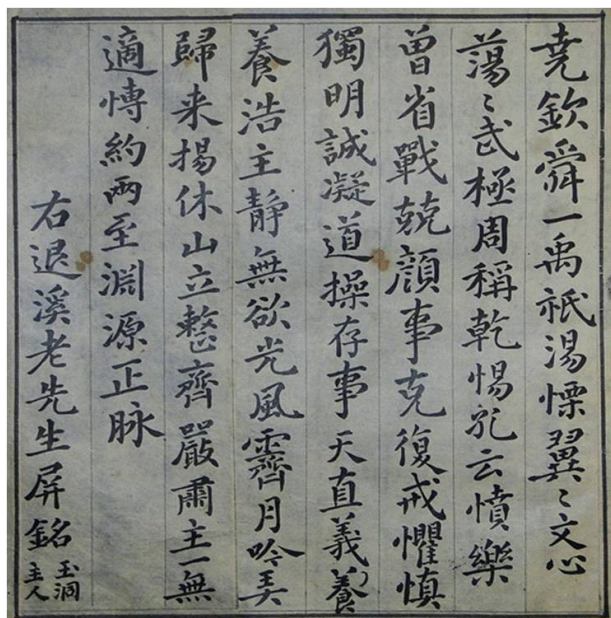 堯欽舜一禹祗湯慄翼〻文心
蕩〻武極周稱乾惕孔云憤樂
曾省戰兢顔事克復戒懼慎
獨明誠凝道操存事天直義養
養浩主静無欲光風霽月吟弄
歸来揚休山立整齊嚴肅主一無
適愽約兩至淵源正脉
右退溪老先生屏銘玉洞
主人